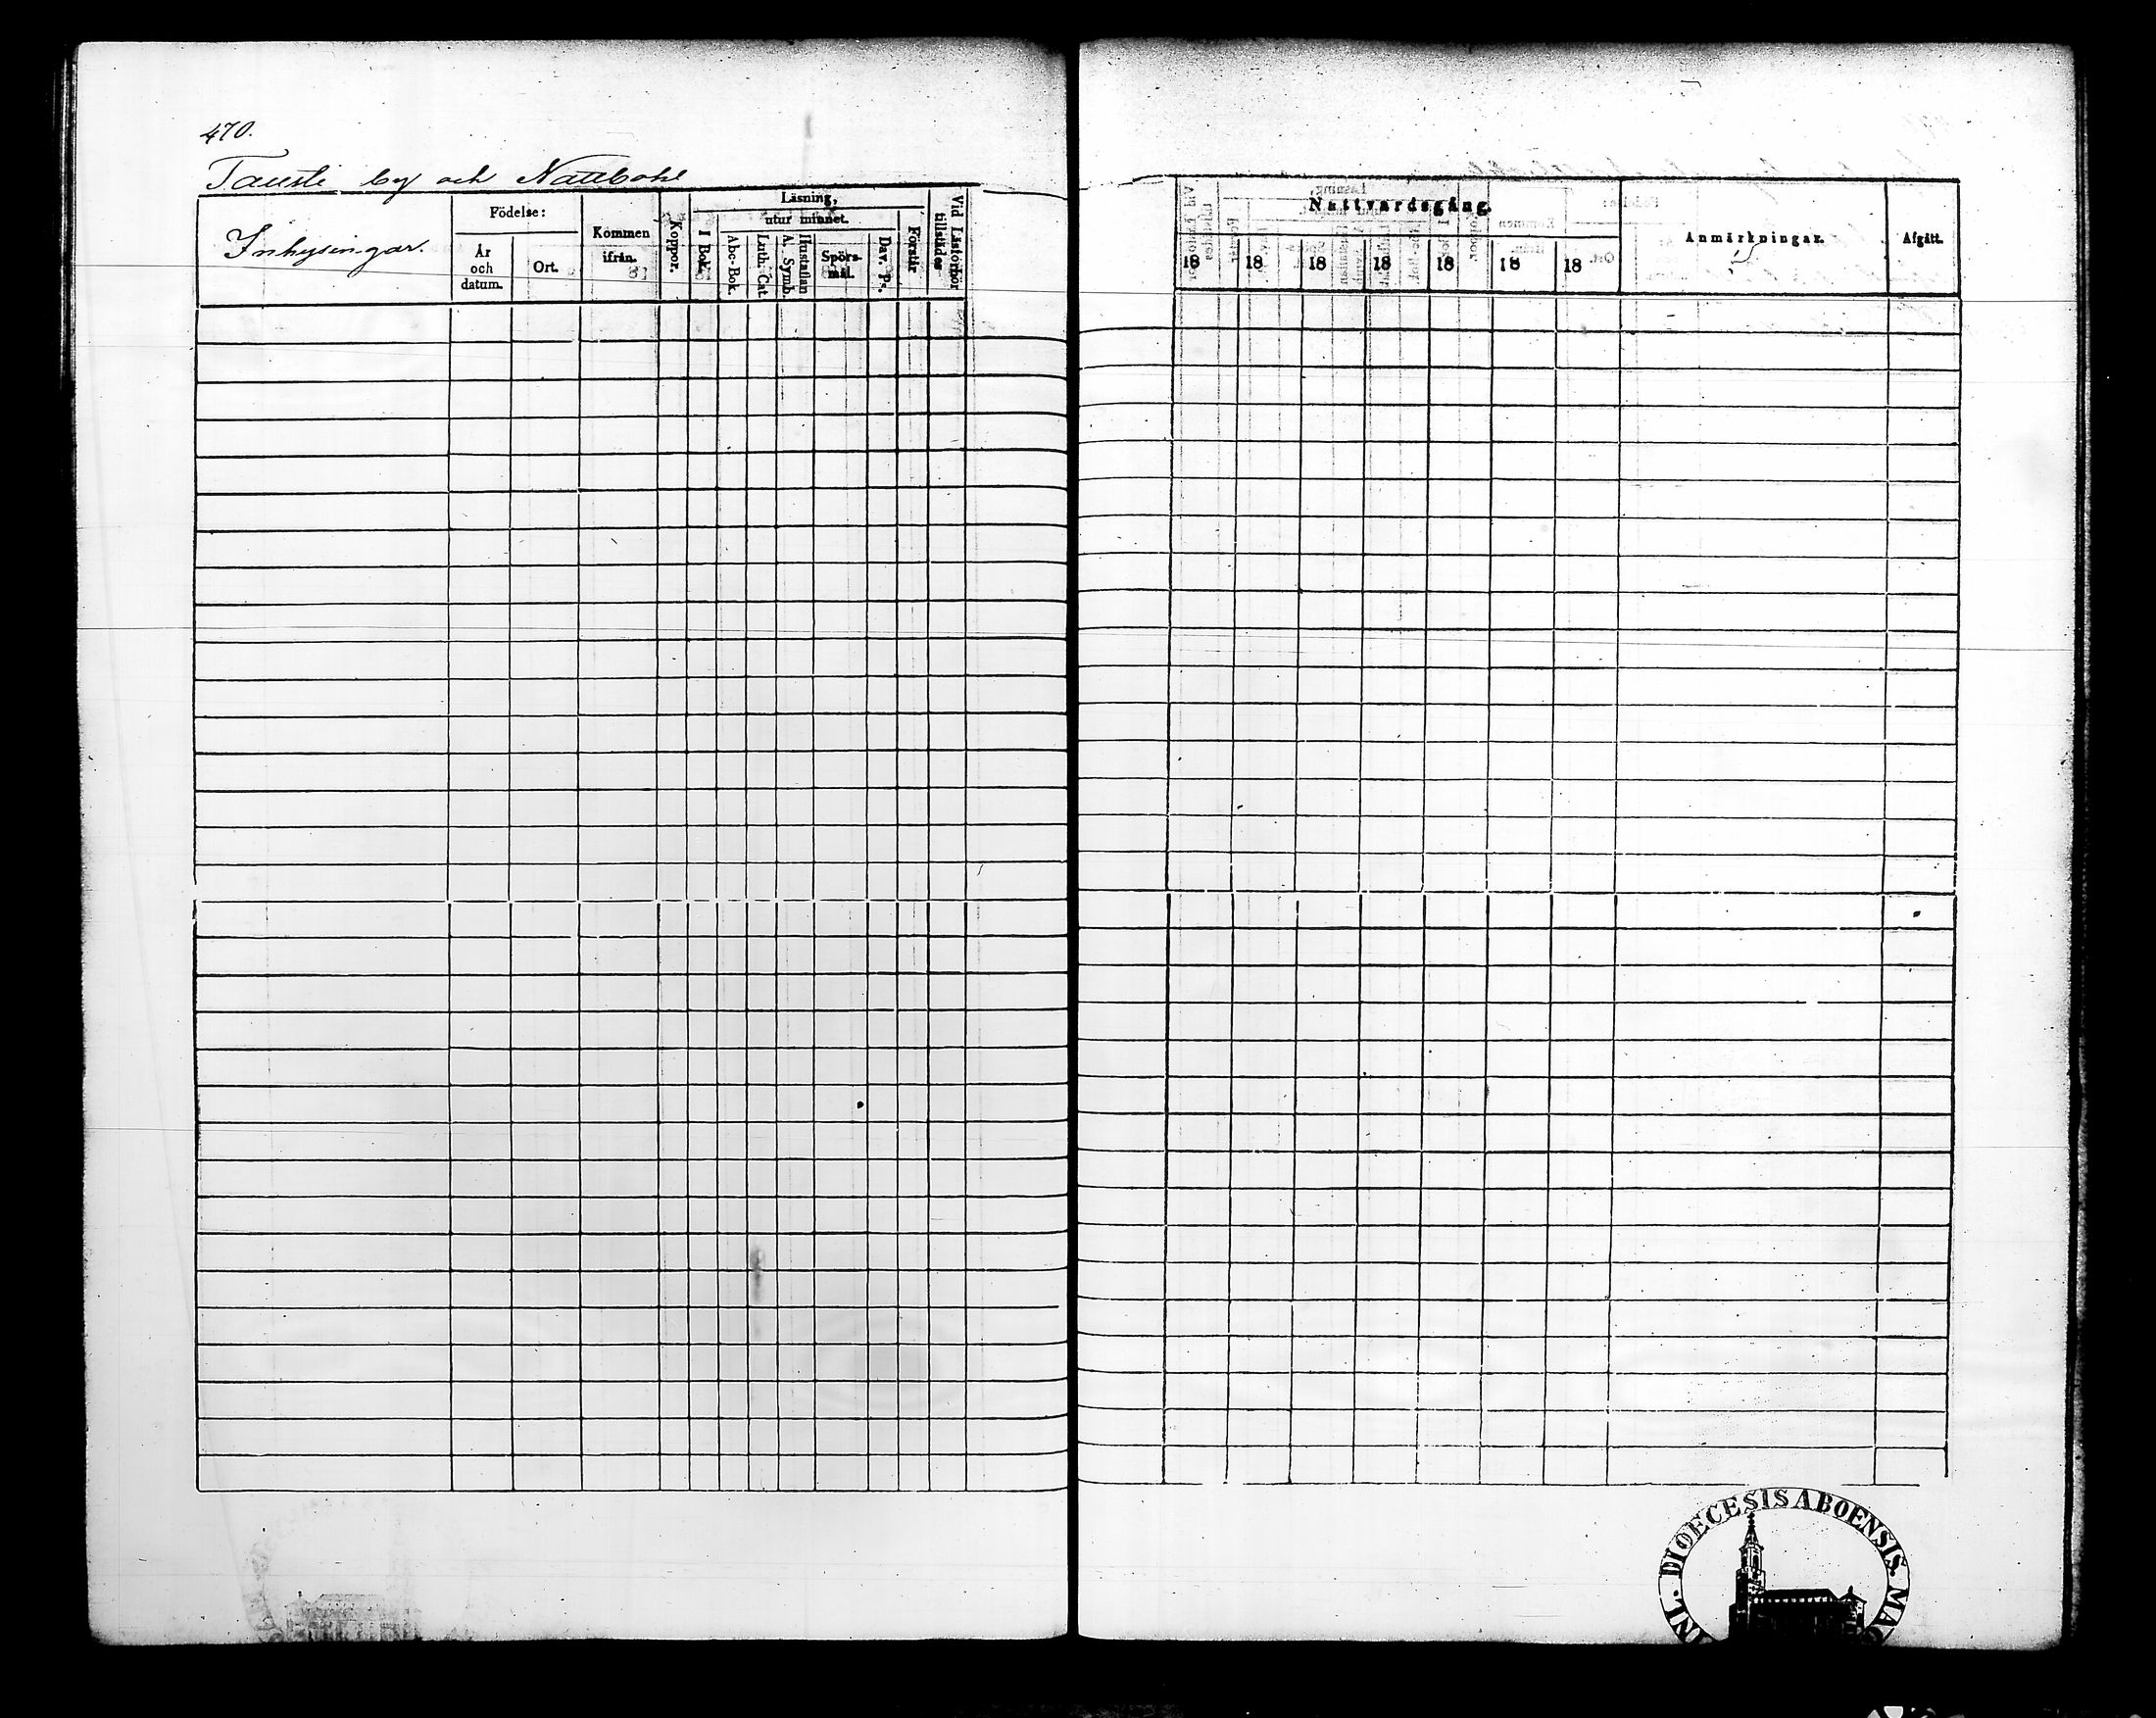 470.
Tauste by och Nattbohl
Inhysingar.
Födelse:
År
och
datum.
Ort.
Kommen
ifrån.
Koppor.
Läsning,
I Bok.
utur minnet.
Abc-Bok.
Luth. Cat.
A. Symb.
Hustaflan
Spörs-
mål.
Dav. Ps.
Förstår
Vid Läsförhör
tillstädes
Nattvardsgång.
18 18 18 18 18 18 18
Anmärkningar.
Afgått.
DIOECESIS ABOENSIS.